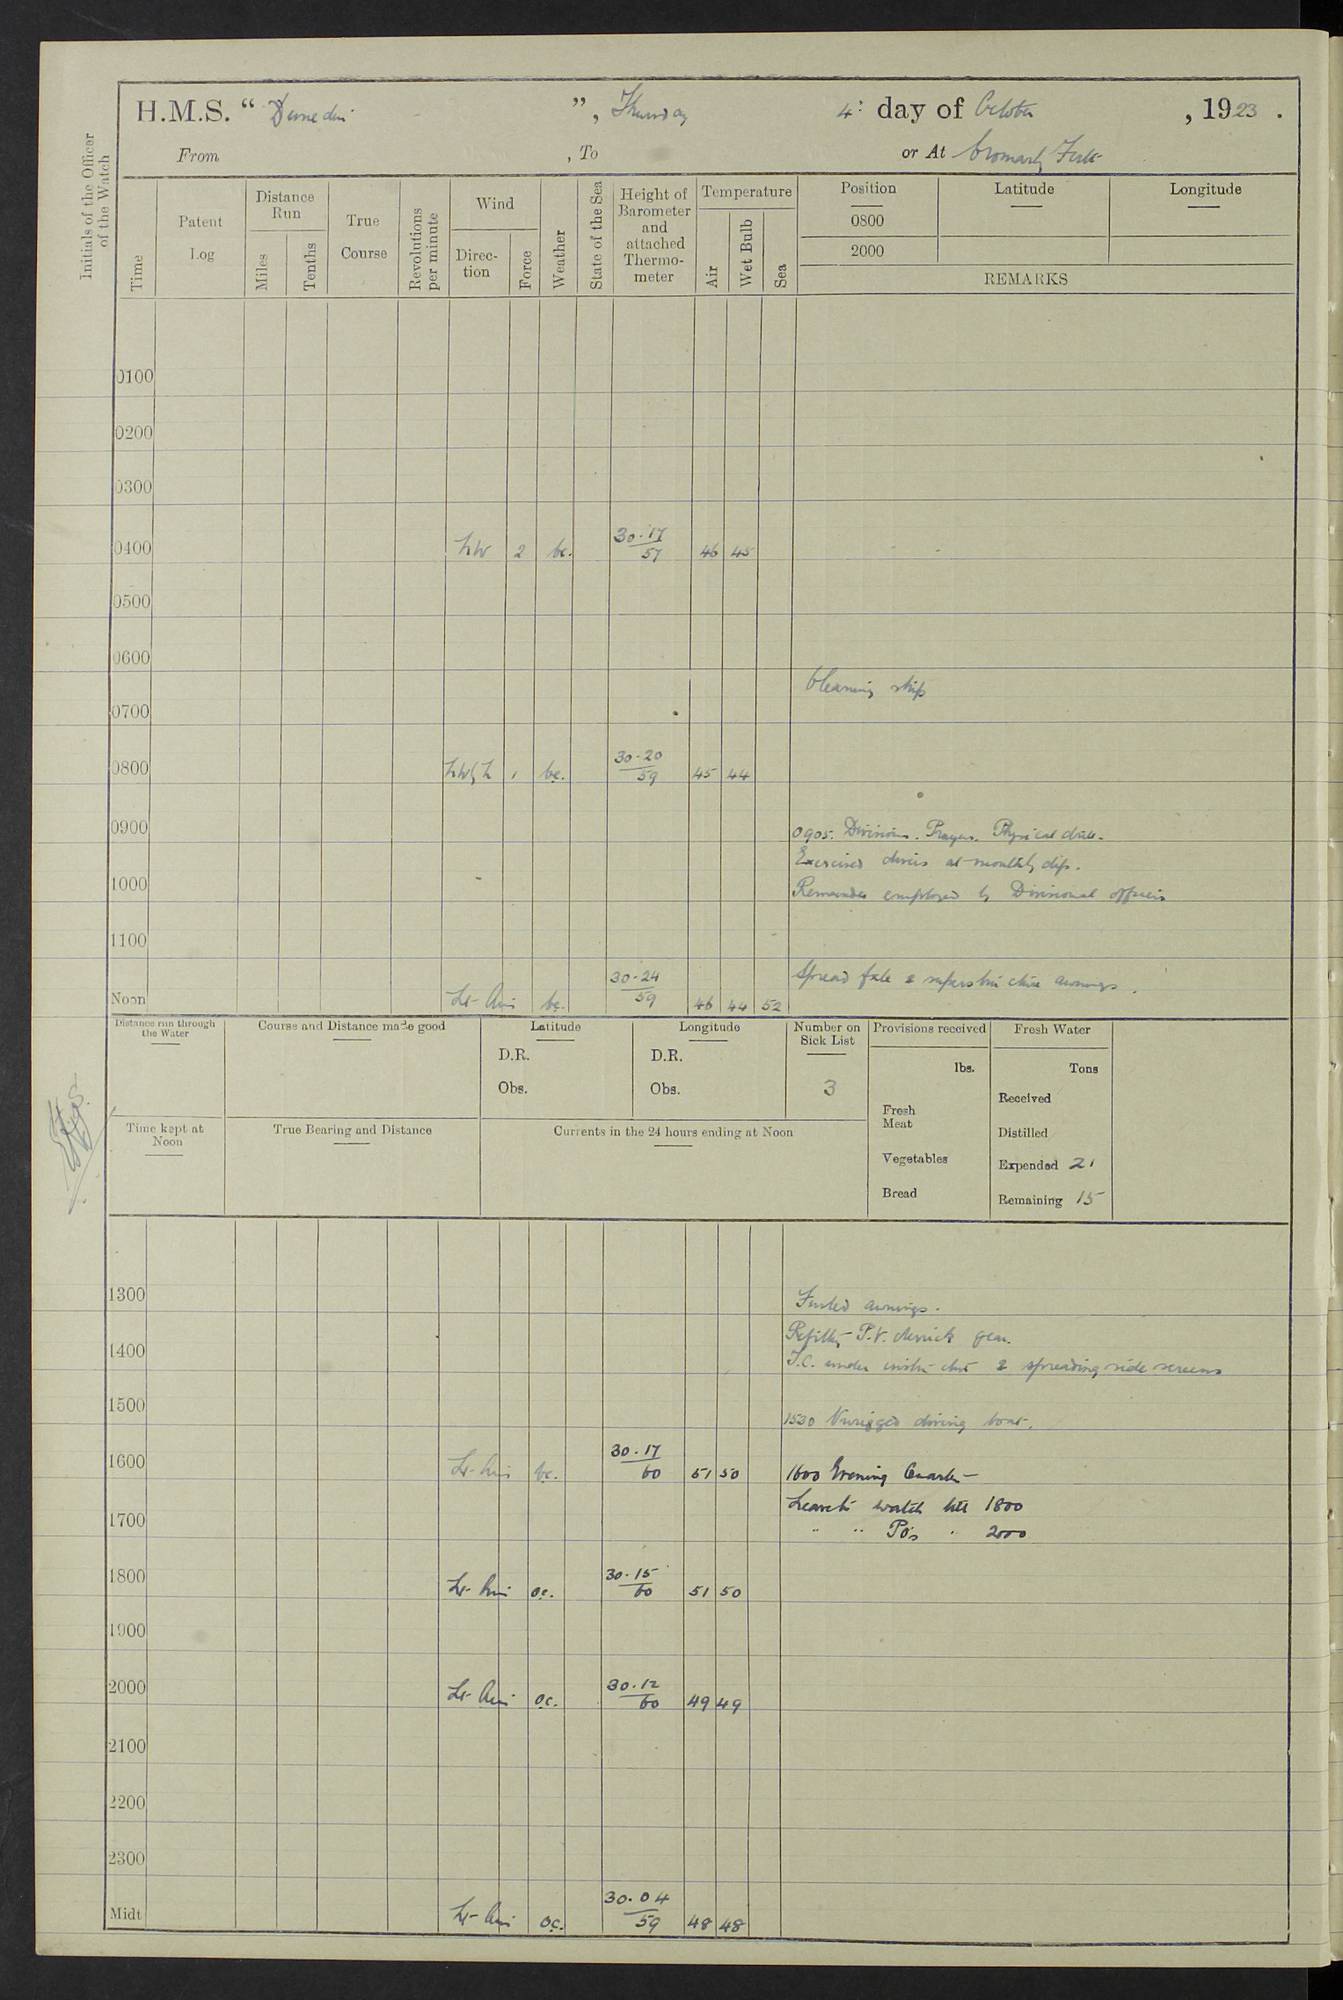 H.M.S. “ Dunedin ”, Thursday 4: day of October , 1923 .
From , To or At Cromarty Firth
Initials of the Officer of the Watch
Time
Patent Log
Distance Run
Miles
Tenths
True Course
Revolutions per minute
Wind
Direction
Force
Weather
State of the Sea
Height of Barometer and attached Thermometer
Temperature
Air
Wet Bulb
Sea
Position
Latitude
Longitude
0800
2000
REMARKS
0100
0200
0300
0400 NW 2 bc. 30.17 57 46 45
0500
0600
Cleaning ship
0700
0800 NWbN 1 bc. 30.20 59 45 44
0900
0905. Divisions. Prayers. Physical drill.
Exercised divers at monthly dip.
1000
Remainder employed by Divisional officers
1100
Spread fxle & superstructure awnings.
Noon Lt Airs bc. 30.24 59 46 44 52
Distance run through the Water
Course and Distance made good
Latitude
D.R.
Obs.
Longitude
D.R.
Obs.
Number on Sick List
3
Provisions received
lbs.
Fresh Meat
Vegetables
Bread
Fresh Water
Tons
Received
Distilled
Expended 21
Remaining 15
Time kept at Noon
True Bearing and Distance
Currents in the 24 hours ending at Noon
1300
Furled awnings.
Refitting P.V. derrick gear.
1400
T.C. under instruction & spreading side screens
1500
1530 Unrigged diving boat.
1600 Lt Airs bc. 30.17 60 51 50 1600 Evening Quarters
Leave to watch till 1800
1700
" " POs " 2000
1800 Lt Airs oc. 30.15 60 51 50
1900
2000 Lt Airs oc. 30.12 60 49 49
2100
2200
2300
Midt Lt Airs oc. 30.04 59 48 48